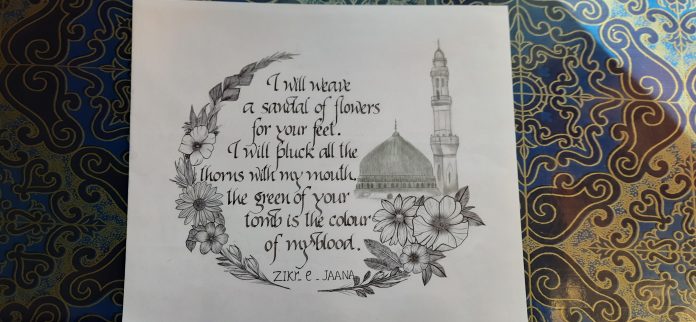 I will weave
a sandal of flowers
for your feet.
I will pluck all the
thorns with my mouth.
the green of your
tomb is the colour
of my blood.
ZIKR_e_JAANA